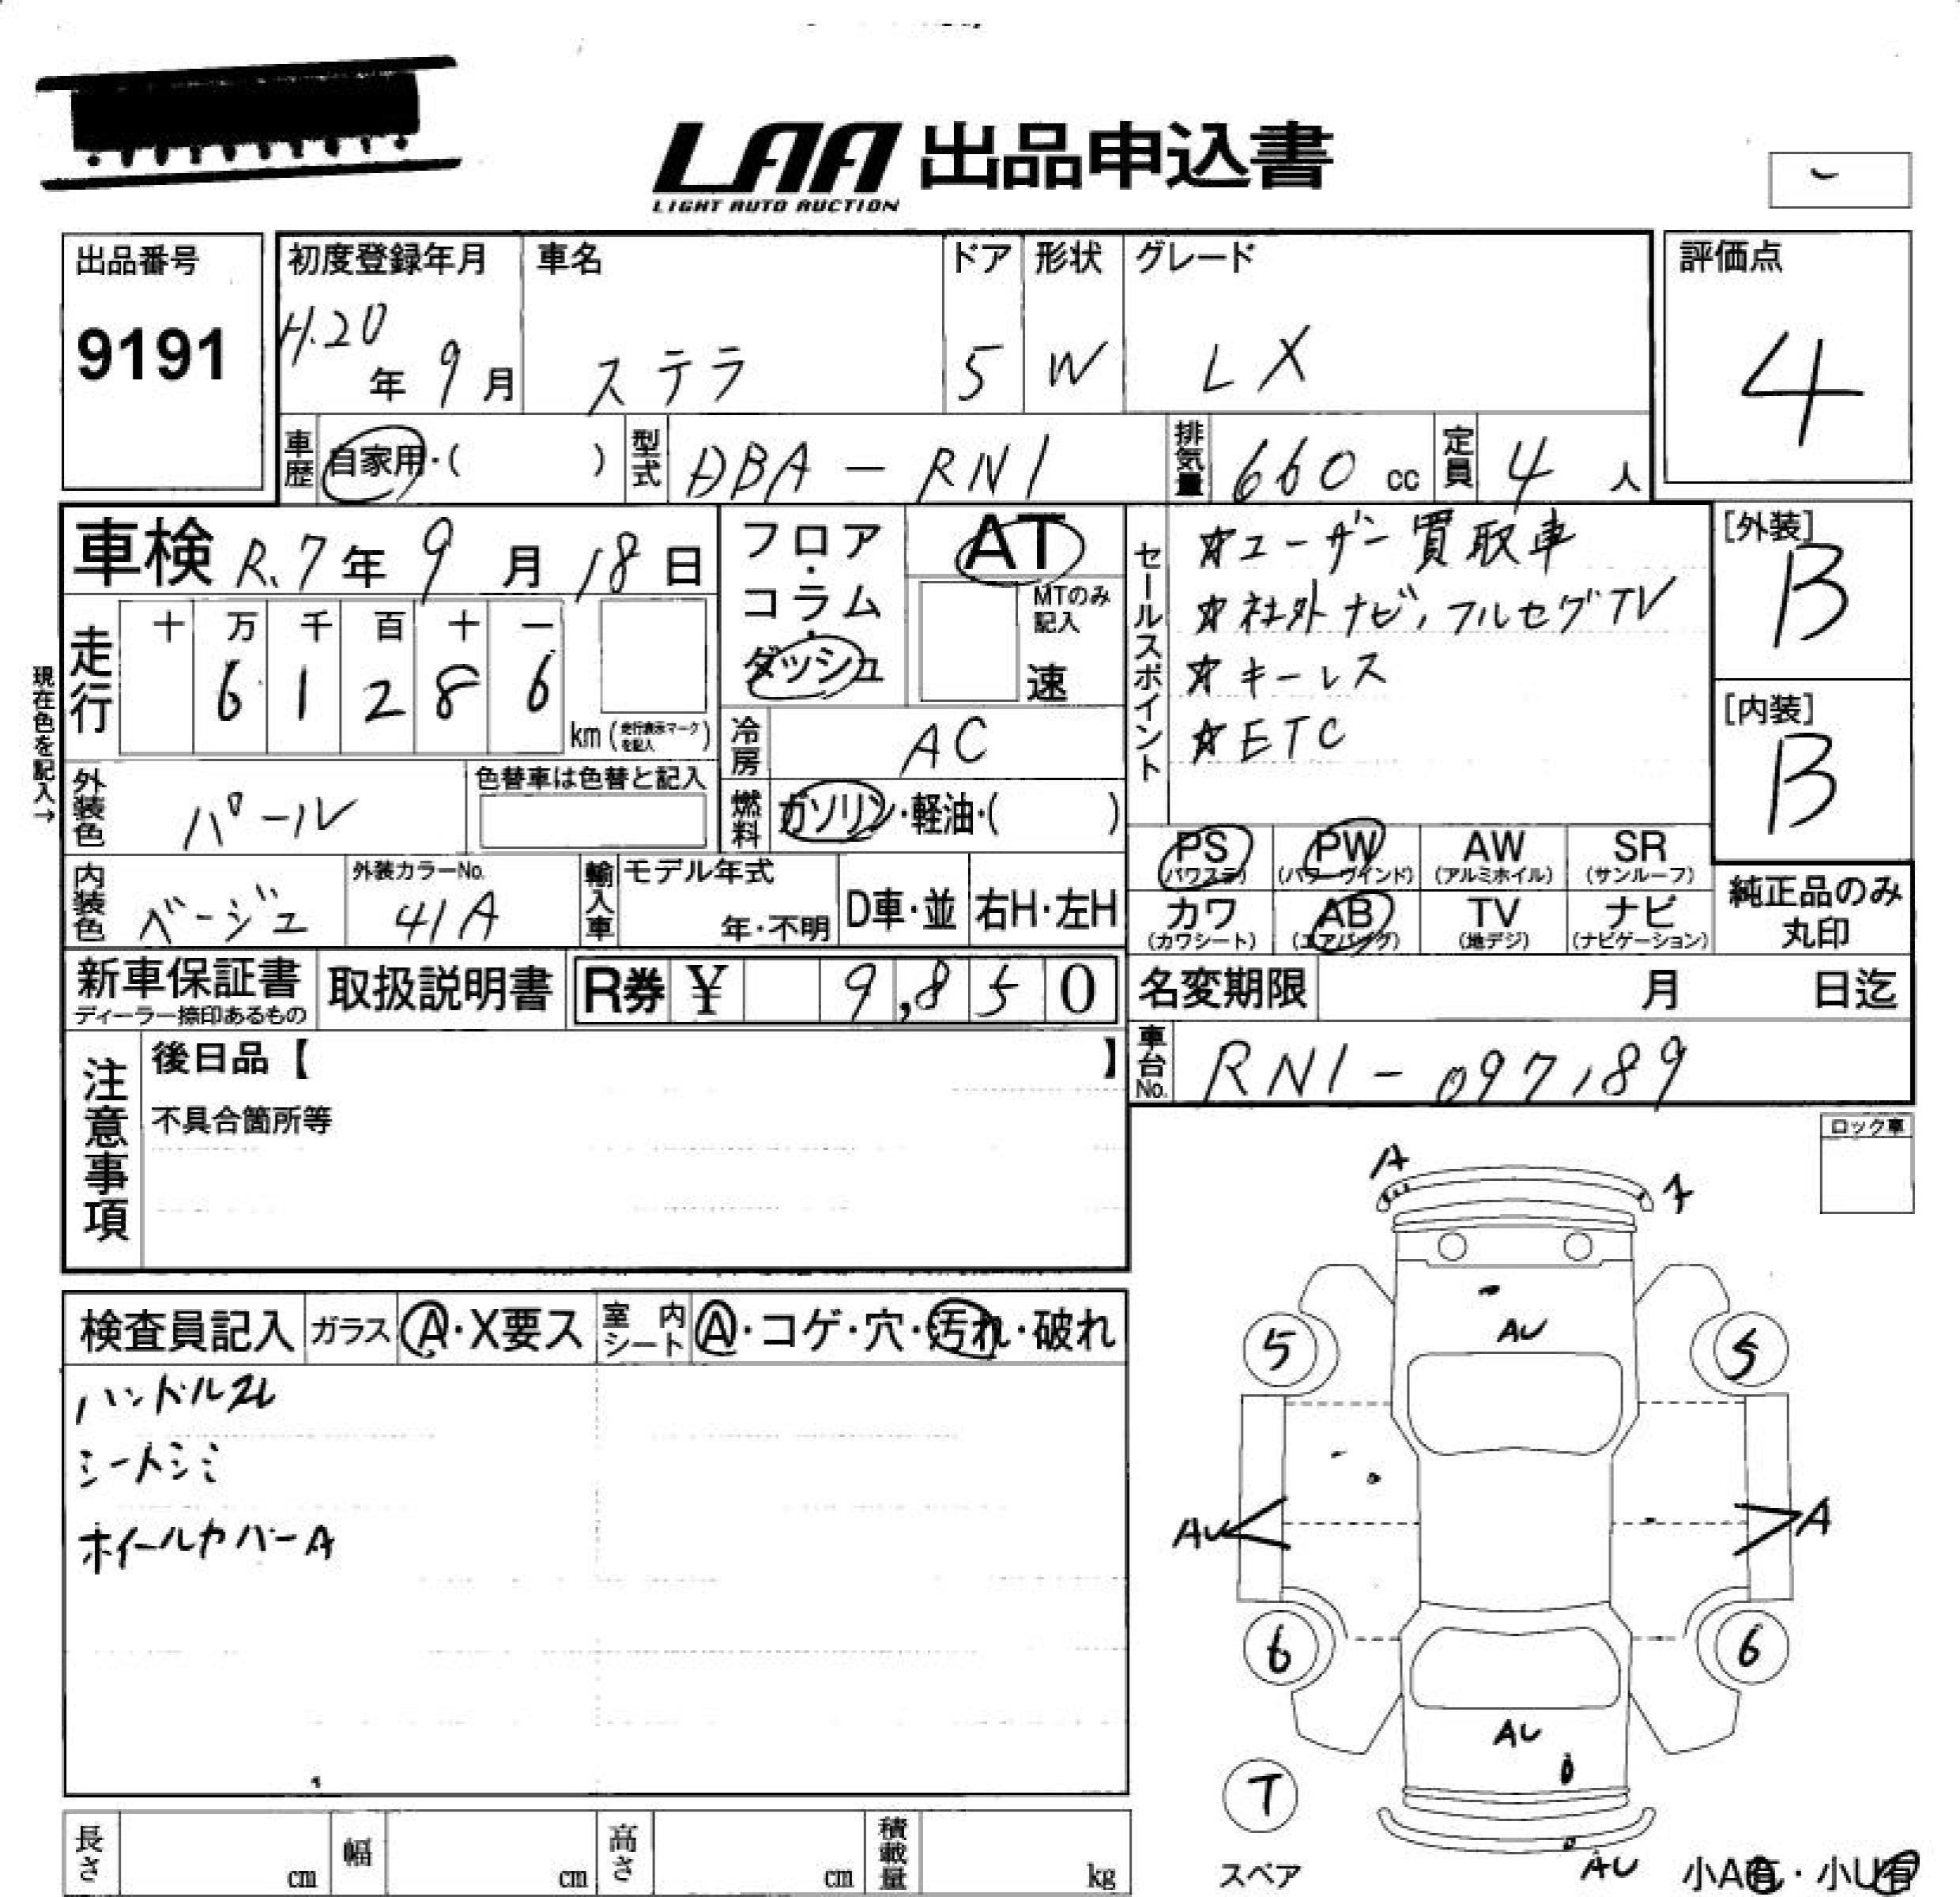 LAA 出品申込書
LIGHT AUTO AUCTION
出品番号
9191
初度登録年月
H.20年 9月
車名
ステラ
ドア
5
形状
W
グレード
LX
評価点
4
車歴 自家用・( )
型式 DBA-RN1
排気量 660 cc
定員 4 人
車検 R.7年 9月 18日
フロア・コラム・ダッシュ
AT
MTのみ記入
速
セールスポイント
☆ユーザー買取車
☆社外ナビ、フルセグTV
☆キーレス
☆ETC
[外装]
B
[内装]
B
現在色を記入→
走行
十 万 千 百 十 一
6 1 2 8 6
km (走行表示マークを記入)
冷房 AC
外装色 パール
色替車は色替と記入
燃料 ガソリン・軽油・( )
内装色 ベージュ
外装カラーNo.
41A
輸入車
モデル年式
年・不明
D車・並
右H・左H
PS (パワステ)
PW (パワーウインド)
AW (アルミホイル)
SR (サンルーフ)
カワ (カワシート)
AB (エアバッグ)
TV (地デジ)
ナビ (ナビゲーション)
純正品のみ
丸印
新車保証書
ディーラー捺印あるもの
取扱説明書
R券 ¥ 9,850
名変期限 月 日迄
車台No. RN1-097189
注意事項
後日品【 】
不具合箇所等
ロック車
検査員記入
ガラス A・X要ス
室内シート A・コゲ・穴・汚れ・破れ
ハンドルスレ
シートシミ
ホイールカバーA
A
A
AU
5
5
AU
A
6
6
AU
T
スペア
AU
小A有・小U有
長さ cm
幅 cm
高さ cm
積載量 kg